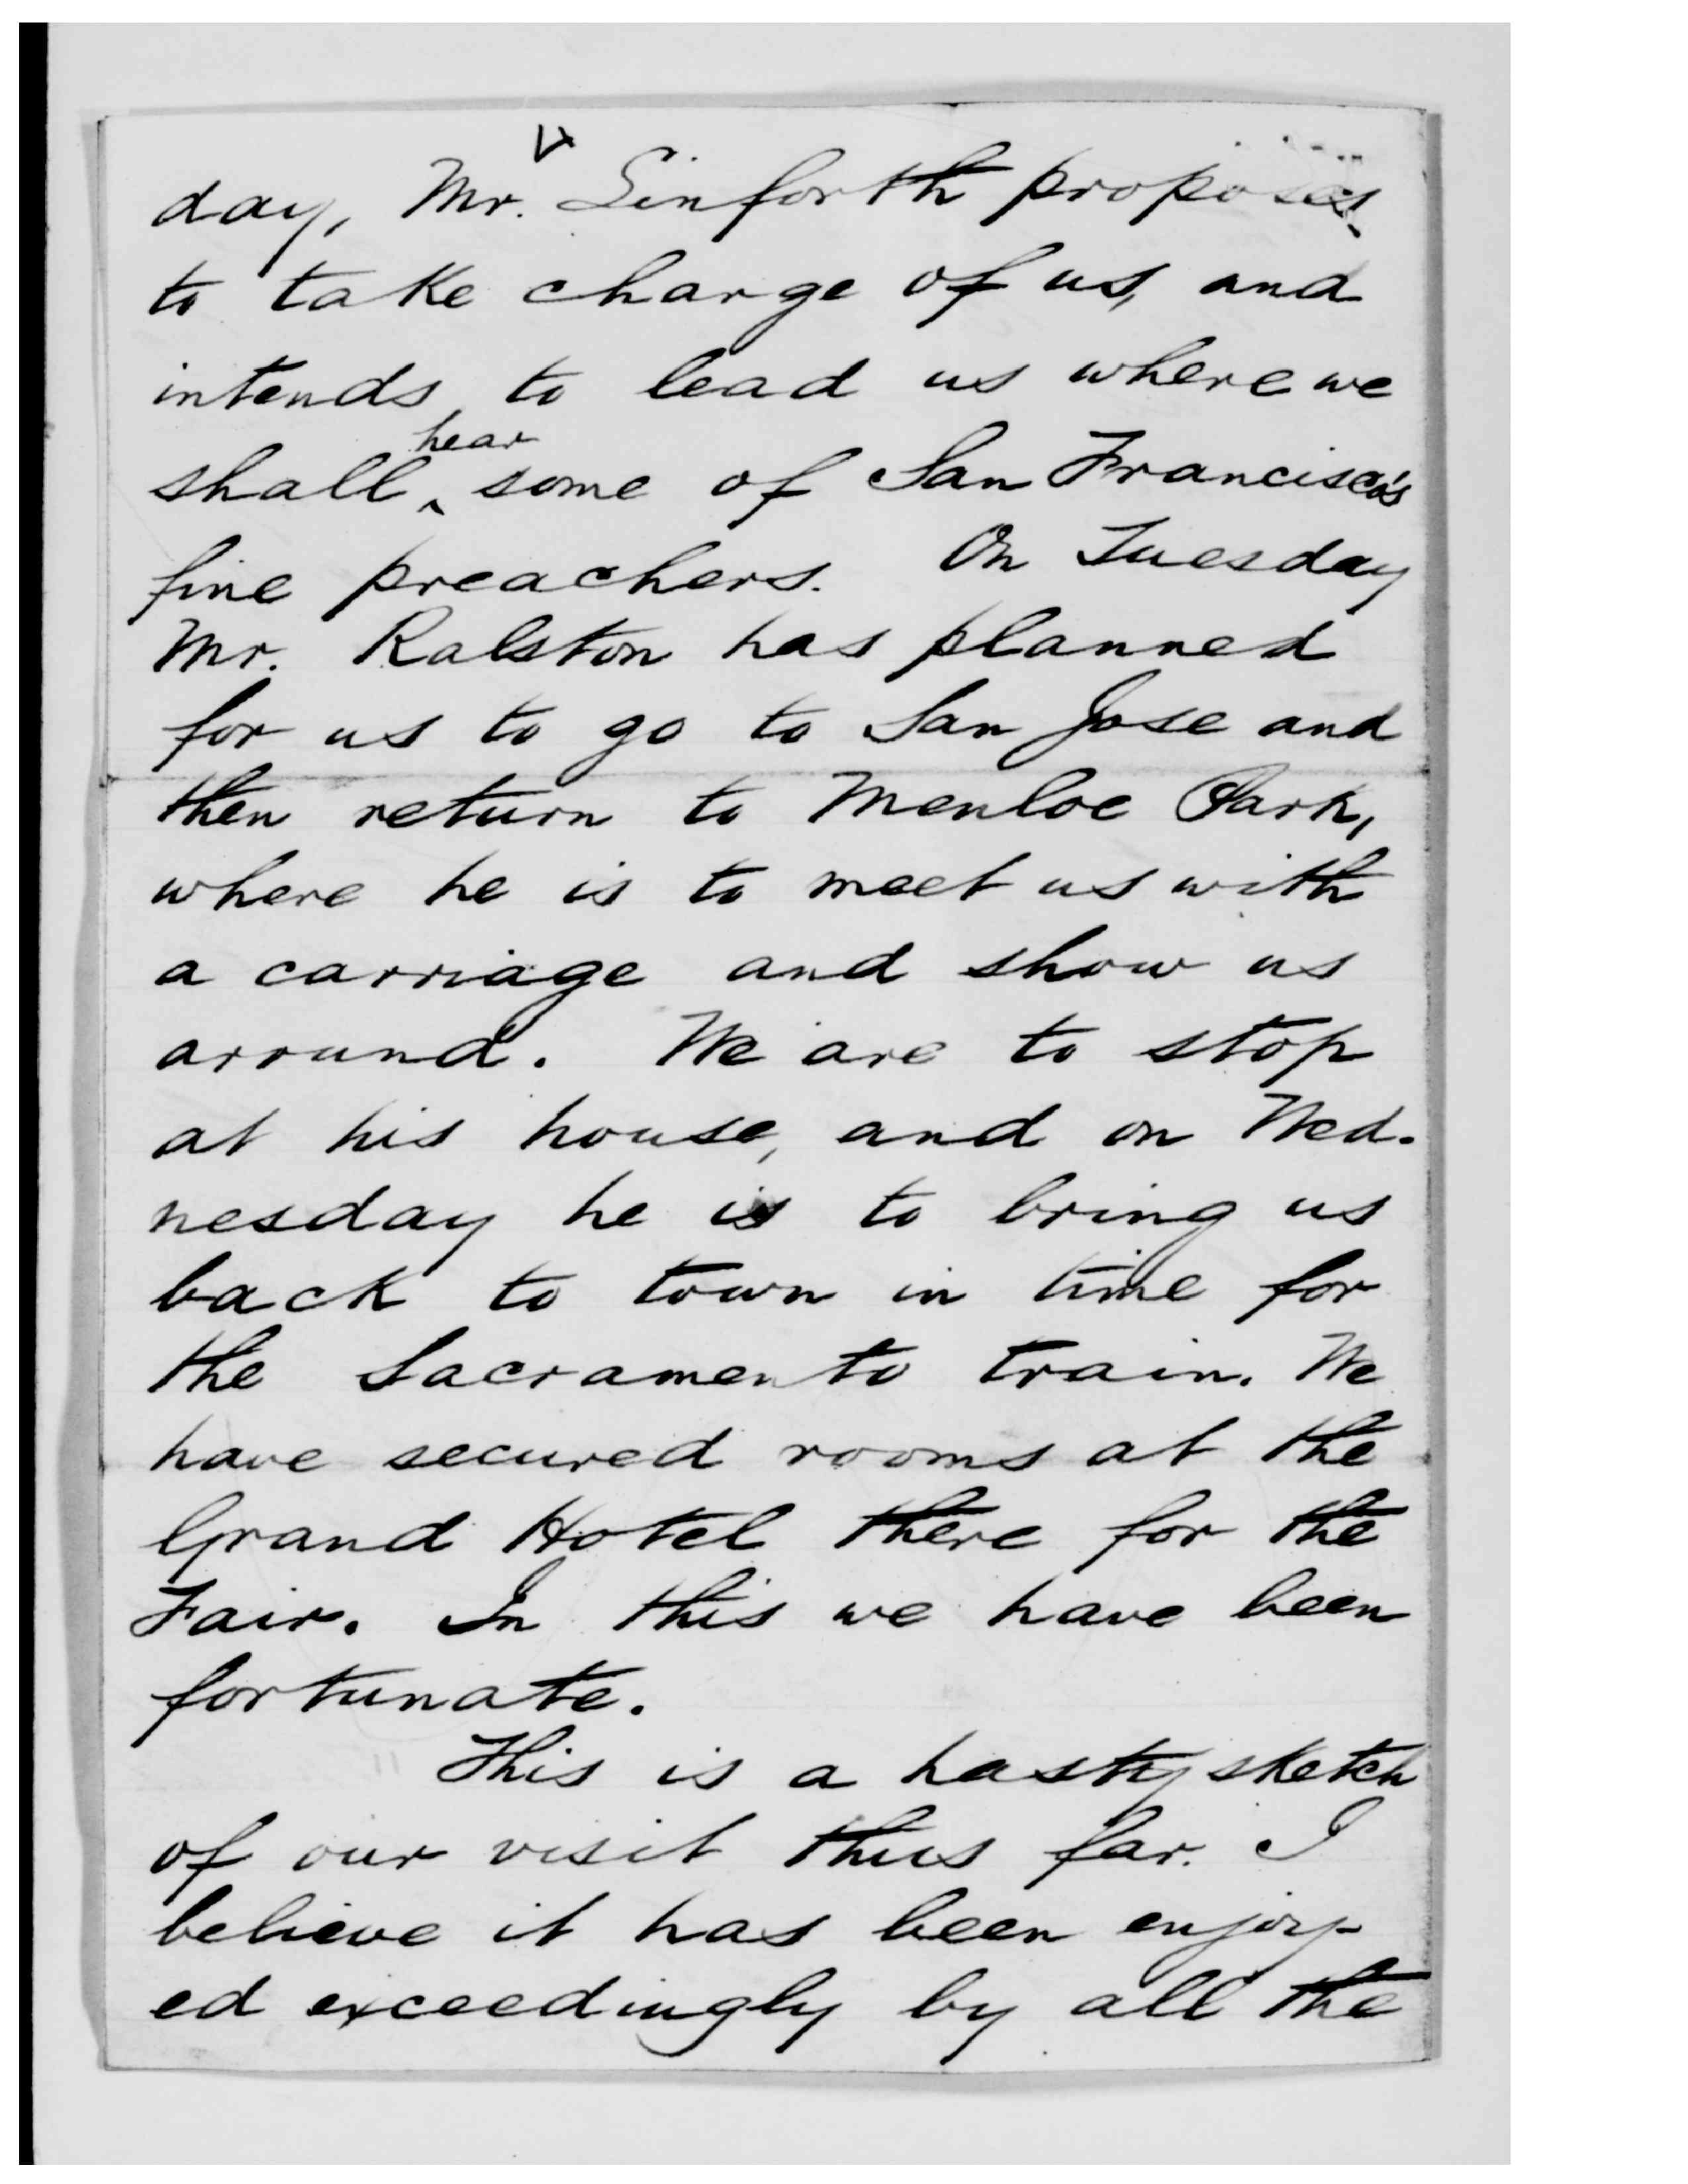 day, Mr. Linforth proposes
to take charge of us, and
intends to lead us where we
shall ^hear some of San Francisco's
fine preachers. On Tuesday
Mr. Ralston has planned
for us to go to San Jose and
then return to Menloe Park,
where he is to meet us with
a carriage and show us
arround. We are to stop
at his house, and on Wed-
nesday he is to bring us
back to town in time for
the Sacramento train. We
have secured rooms at the
Grand Hotel there for the
Fair. In this we have been
fortunate.
This is a hasty sketch
of our visit thus far. I
believe it has been enjoy-
ed exceedingly by all the